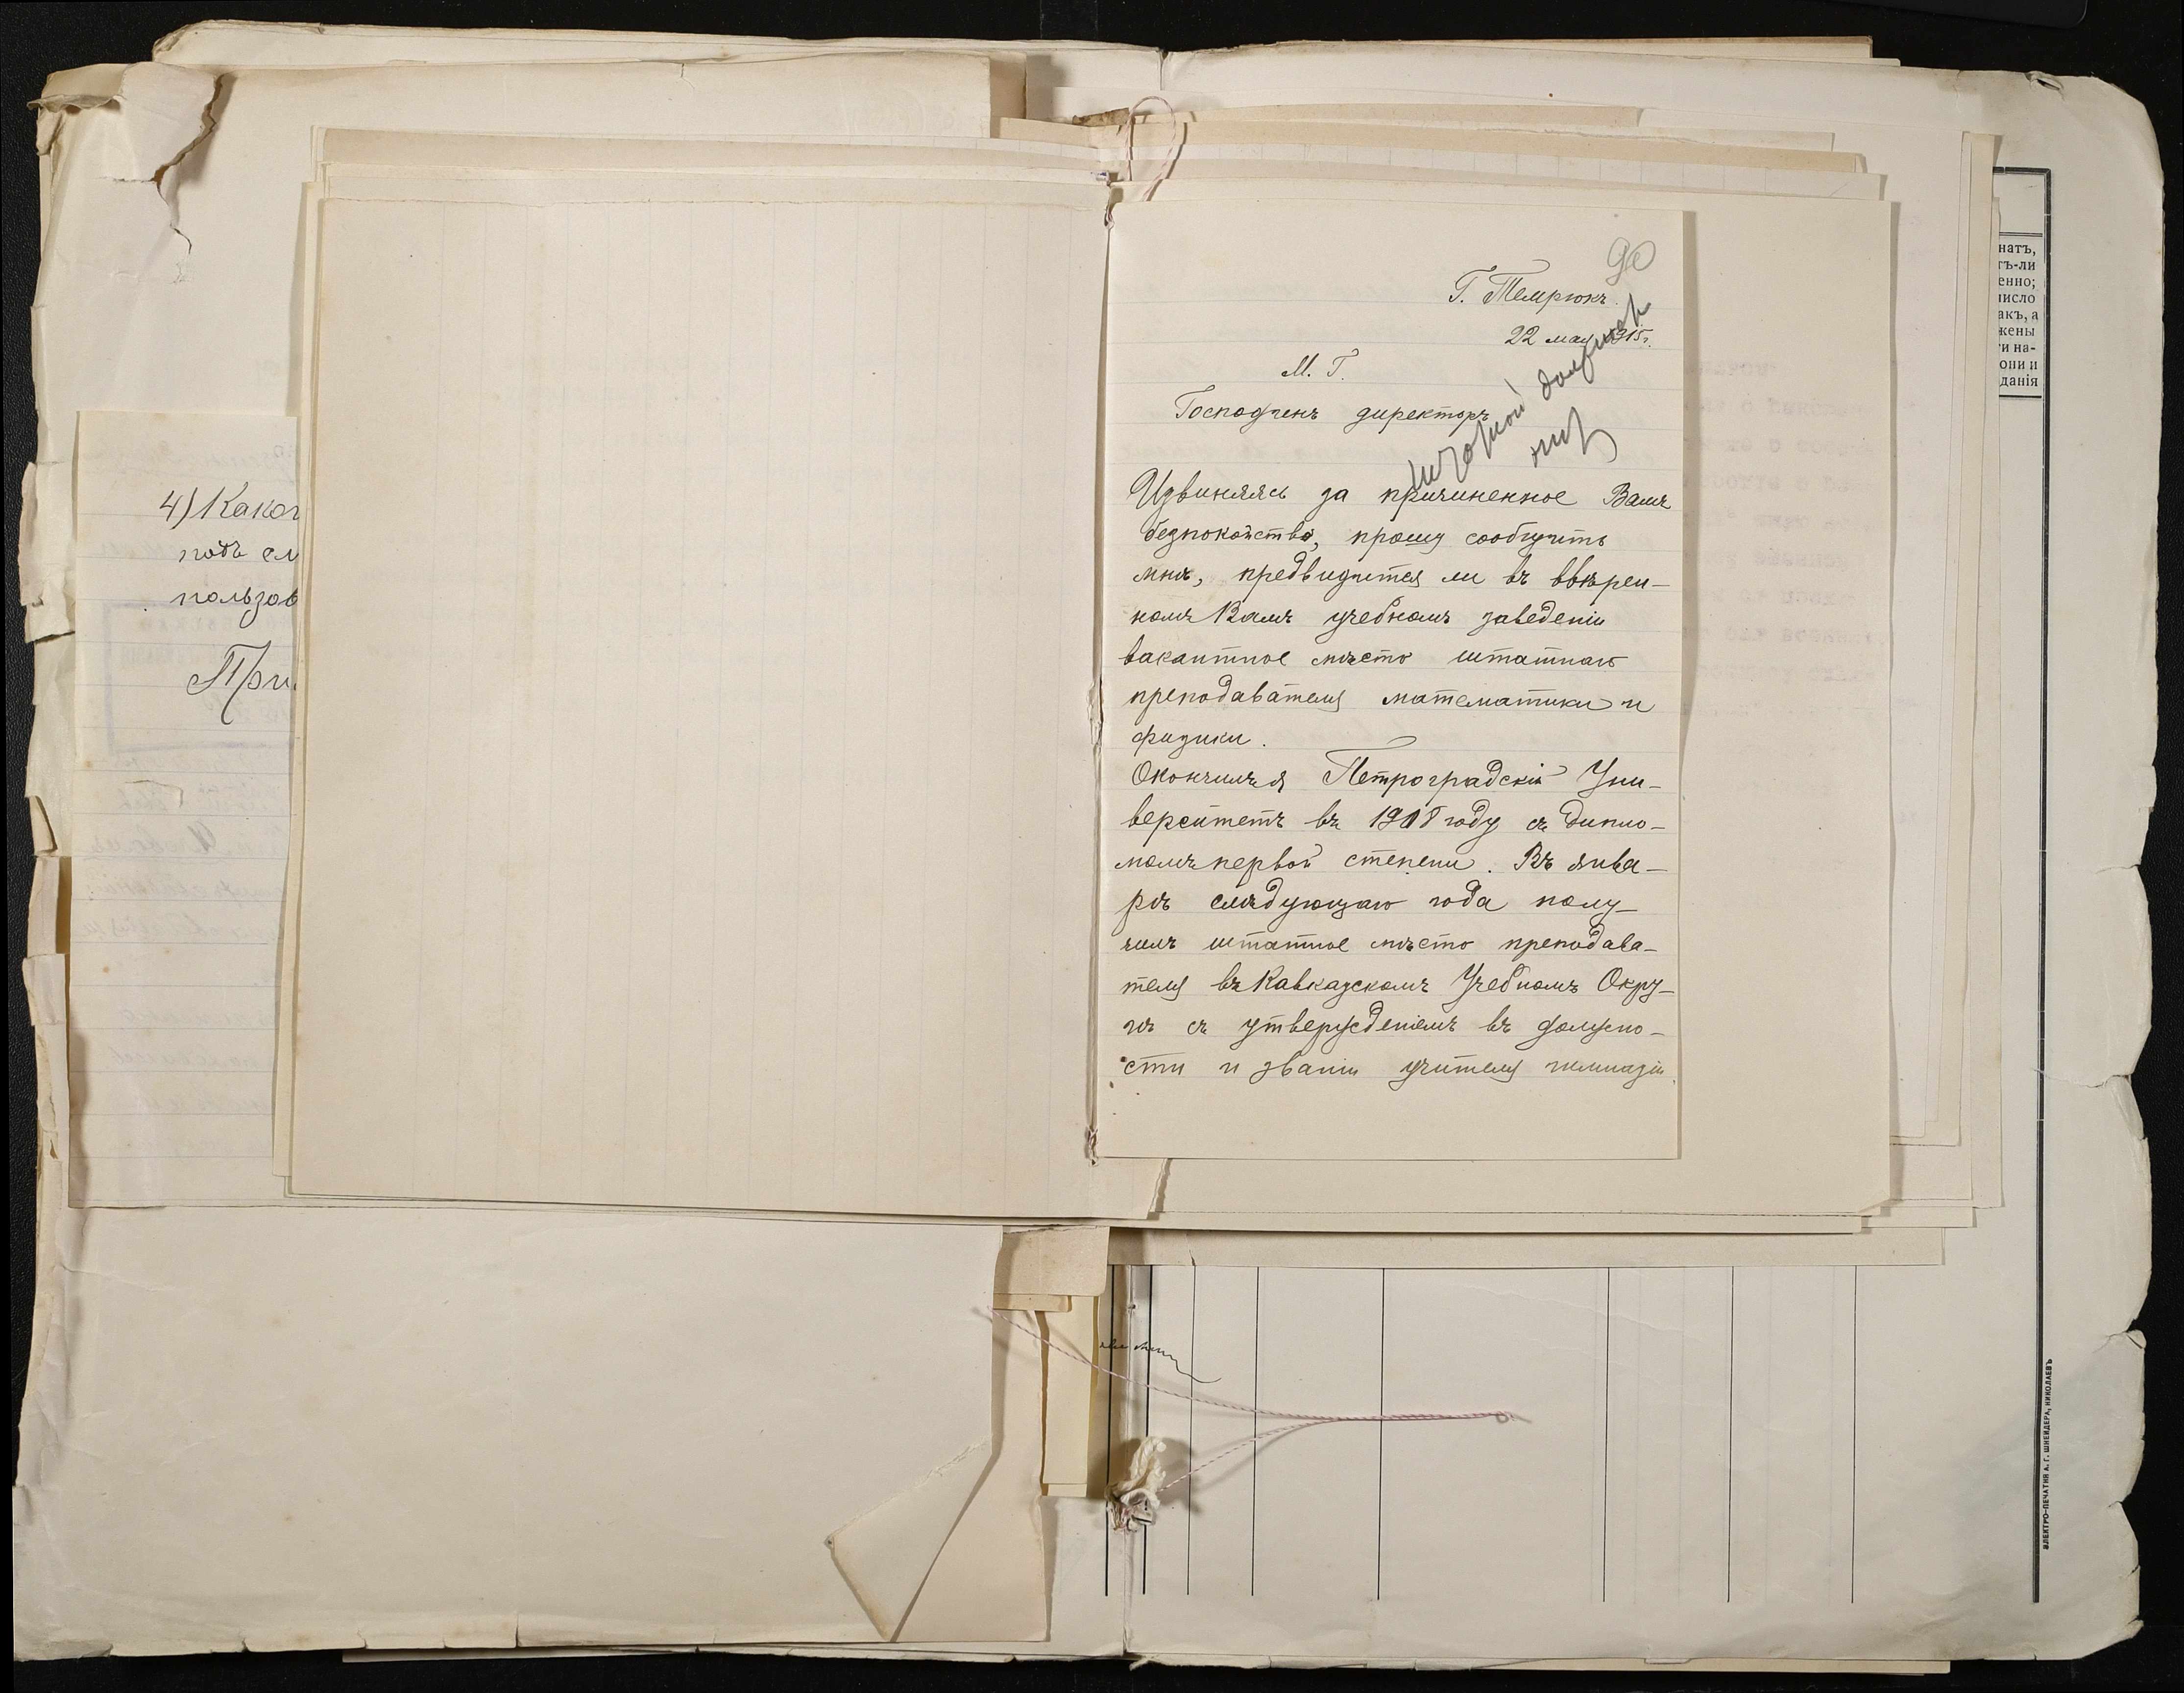 90
Г. Темрюкъ.
22 мая 1915 г.
М. Г.
Господинъ директоръ
Штатной должности
нѣтъ
Извиняясь за причиненное Вамъ
безпокойство, прошу сообщить
мнѣ, предвидится ли въ ввѣрен-
номъ Вамъ учебномъ заведеніи
вакантное мѣсто штатнаго
преподавателя математики и
физики.
Окончилъ я Петроградскій Уни-
верситетъ въ 1908 году съ дипло-
момъ первой степени. Въ янва-
рѣ слѣдующаго года полу-
чилъ штатное мѣсто преподава-
теля въ Кавказскомъ Учебномъ Окру-
гѣ съ утвержденіемъ въ должно-
сти и званіи учителя гимназіи
4) Каког
подъ см
пользов
При
натъ,
ть-ли
енно;
исло
акъ, а
жены
и на-
они и
данія
ЭЛЕКТРО-ПЕЧАТНЯ А. Г. ШНЕЙДЕРА, НИКОЛАЕВЪ